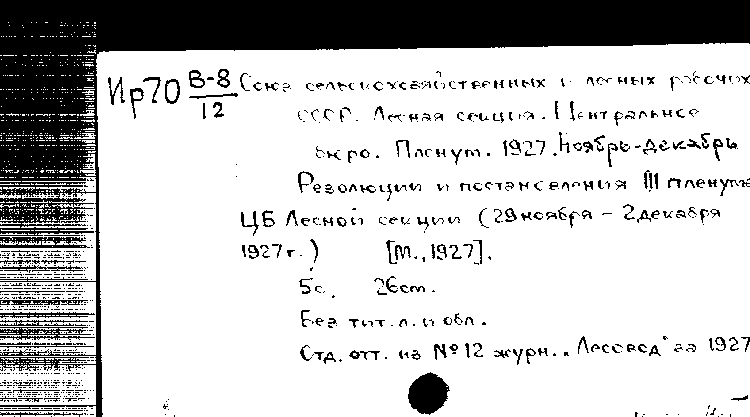 Ир70 В-8/12 Союз сельскохозяйственных и лесных рабочих
СССР. Лесная секция. Центральное
бюро. Пленум. 1927. Ноябрь-декабрь
Резолюции и постановления III пленума
ЦБ Лесной секции (29 ноября - 2 декабря
1927 г.) [М., 1927].
5с. 26см.
Без тит. л. и обл.
Отд. отт. из №12 журн. „Лесовод" за 1927